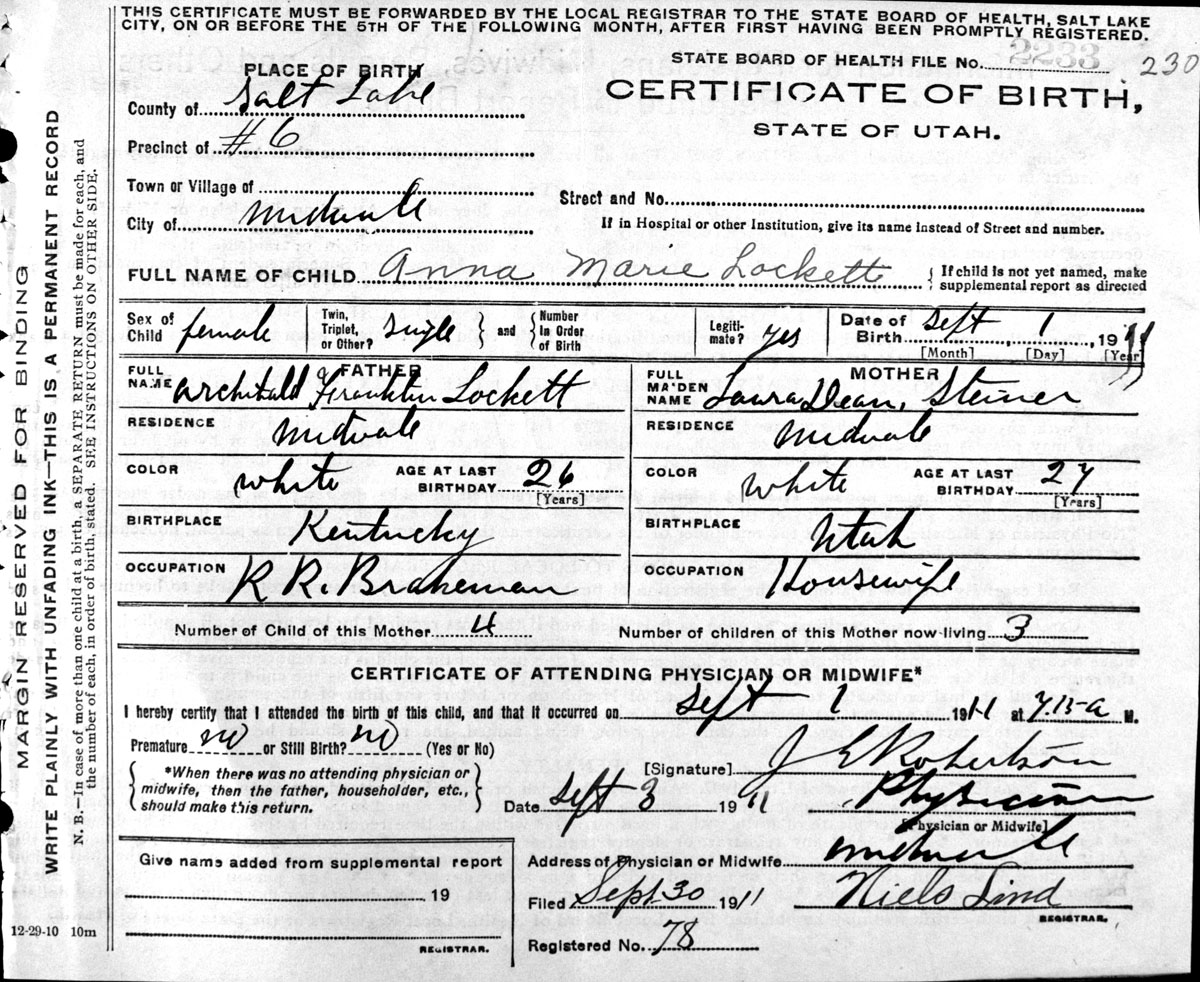 THIS CERTIFICATE MUST BE FORWARDED BY THE LOCAL REGISTRAR TO THE STATE BOARD OF HEALTH, SALT LAKE
CITY, ON OR BEFORE THE 5TH OF THE FOLLOWING MONTH, AFTER FIRST HAVING BEEN PROMPTLY REGISTERED.
STATE BOARD OF HEALTH FILE No. 2233 230
CERTIFICATE OF BIRTH,
STATE OF UTAH.
PLACE OF BIRTH
County of Salt Lake
Precinct of #6
Town or Village of
Street and No.
City of Midvale
If in Hospital or other Institution, give its name instead of Street and number.
FULL NAME OF CHILD Anna Marie Lockett { If child is not yet named, make supplemental report as directed
Sex of Child female Twin, Triplet, or Other? single } and { Number in Order of Birth Legiti-mate? yes Date of Birth Sept 1, 1911
[Month] [Day] [Year]
FATHER
FULL NAME Archibald Franklin Lockett
RESIDENCE Midvale
COLOR white AGE AT LAST BIRTHDAY 26
[Years]
BIRTHPLACE Kentucky
OCCUPATION R R. Brakeman
MOTHER
FULL MAIDEN NAME Laura Dean, Steiner
RESIDENCE Midvale
COLOR white AGE AT LAST BIRTHDAY 27
[Years]
BIRTHPLACE Utah
OCCUPATION Housewife
Number of Child of this Mother 4 Number of children of this Mother now living 3
CERTIFICATE OF ATTENDING PHYSICIAN OR MIDWIFE*
I hereby certify that I attended the birth of this child, and that it occurred on Sept 1 1911 at M.
Premature no or Still Birth? no (Yes or No)
{ *When there was no attending physician or
midwife, then the father, householder, etc.,
should make this return. }
[Signature] J E Robertson
Date Sept 3 1911 Physician
[Physician or Midwife]
Give name added from supplemental report
19
REGISTRAR.
Address of Physician or Midwife Midvale
Filed Sept 30 1911 Niels Lind
REGISTRAR.
Registered No. 78
12-29-10 10m
MARGIN RESERVED FOR BINDING
WRITE PLAINLY WITH UNFADING INK—THIS IS A PERMANENT RECORD
N. B.—In case of more than one child at a birth, a SEPARATE RETURN must be made for each, and
the number of each, in order of birth, stated. SEE INSTRUCTIONS ON OTHER SIDE.